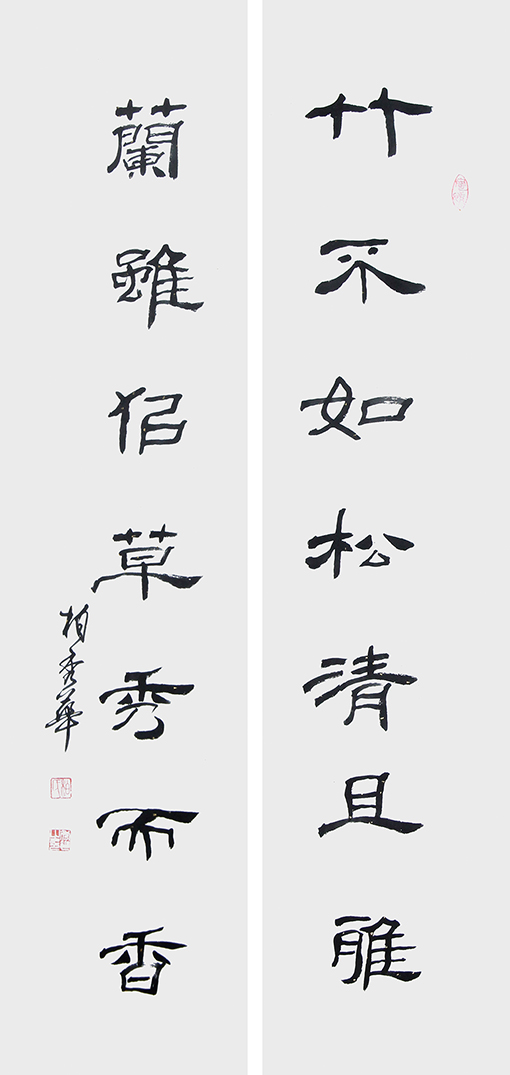 竹不如松清且雅
蘭雖佀草秀而香
柏秀華